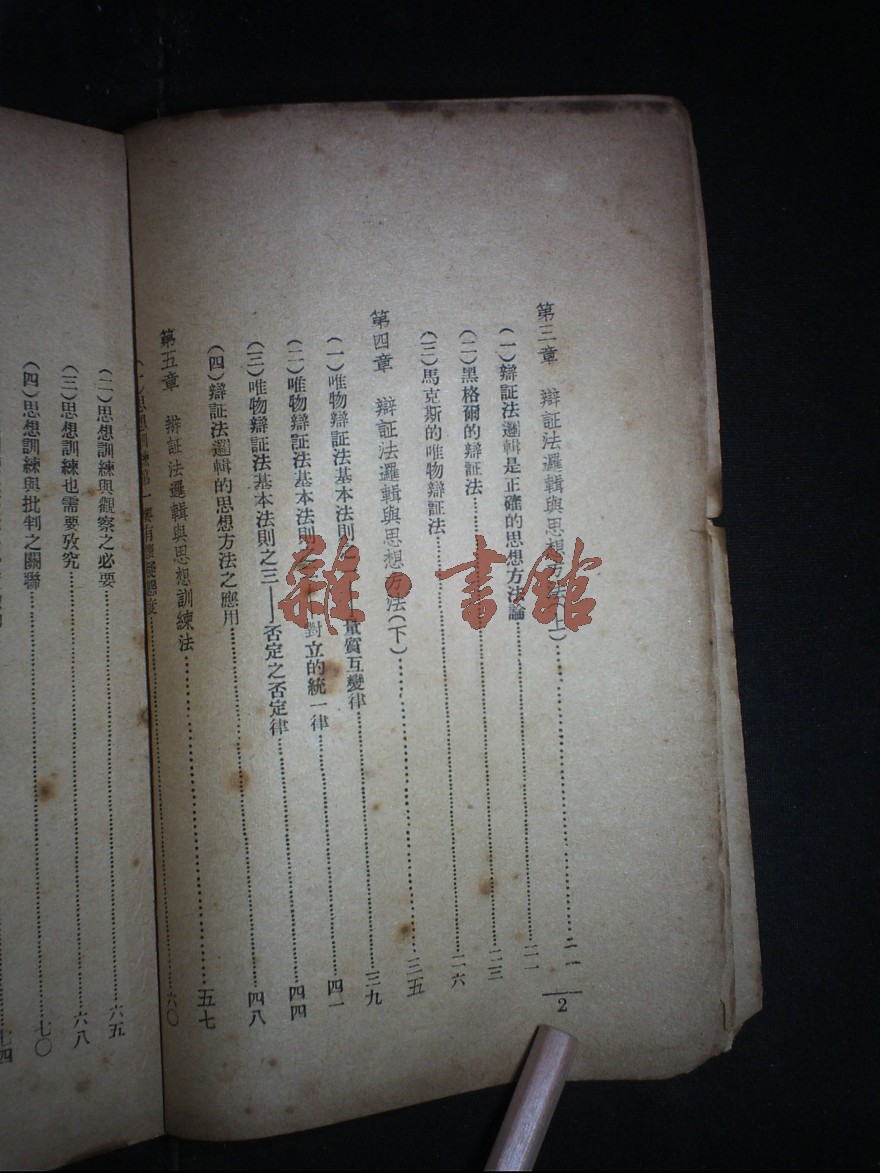 第三章 辯証法邏輯與思想方法(上)……二一
(一)辯証法邏輯是正確的思想方法論……二一
(二)黑格爾的辯証法……二三
(三)馬克斯的唯物辯証法……二六
第四章 辯証法邏輯與思想方法(下)……三五
(一)唯物辯証法基本法則 量質互變律……三九
(二)唯物辯証法基本法則 對立的統一律……四一
(三)唯物辯証法基本法則之三——否定之否定律……四四
(四)辯証法邏輯的思想方法之應用……四八
第五章 辯証法邏輯與思想訓練法……五七
(一)思想訓練第一要有懷疑態度……六〇
(二)思想訓練與觀察之必要……六五
(三)思想訓練也需要攷究……六八
(四)思想訓練與批判之關聯……七〇
七四
2
雜·書館